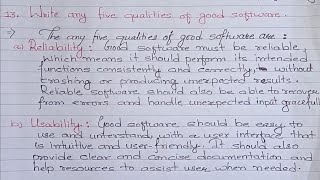 13. Write any five qualities of good software.
⇒ The any five qualities of good software are :
(a) Reliability : Good software must be reliable,
which means it should perform its intended
functions consistently and correctly, without
crashing or producing unexpected results.
Reliable software should also be able to recover
from errors and handle unexpected input gracefull
b) Usability : Good software should be easy to
use and understand, with a user interface that
is intuitive and user-friendly. It should also
provide clear and concise documentation and
help resources to assist user when needed.